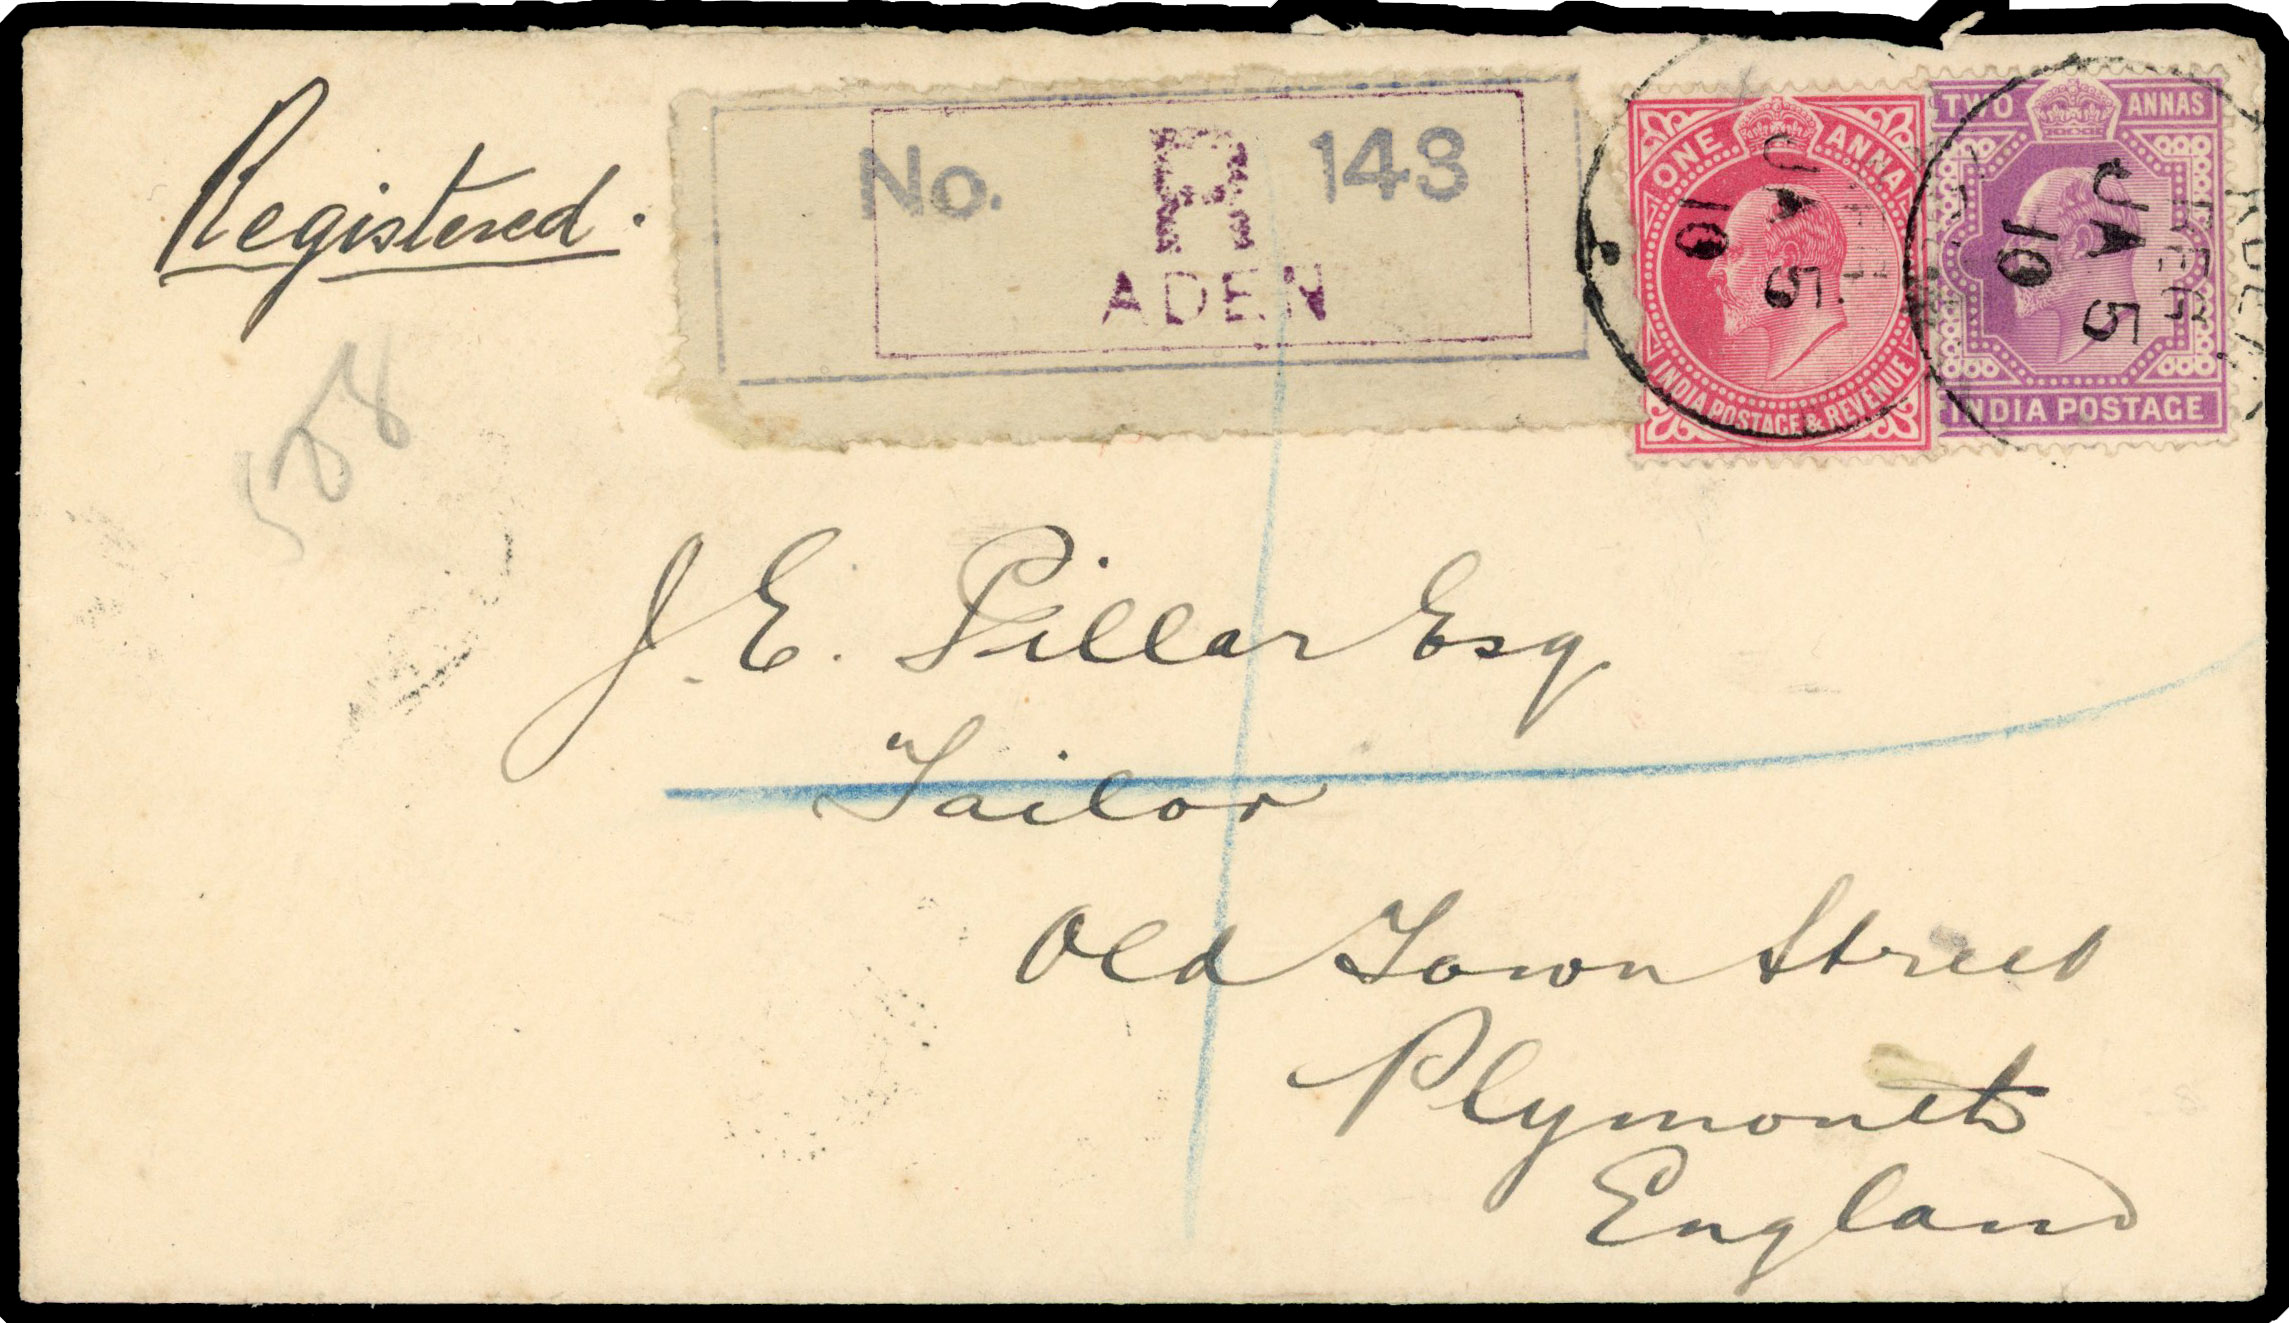 Registered.
No. R 143
ADEN
ONE ANNA
INDIA POSTAGE & REVENUE
TWO ANNAS
INDIA POSTAGE
JA 5
10
ADEN
REG
JA 5
10
J. E. Pillar Esq
Tailor
Old Town Street
Plymouth
England